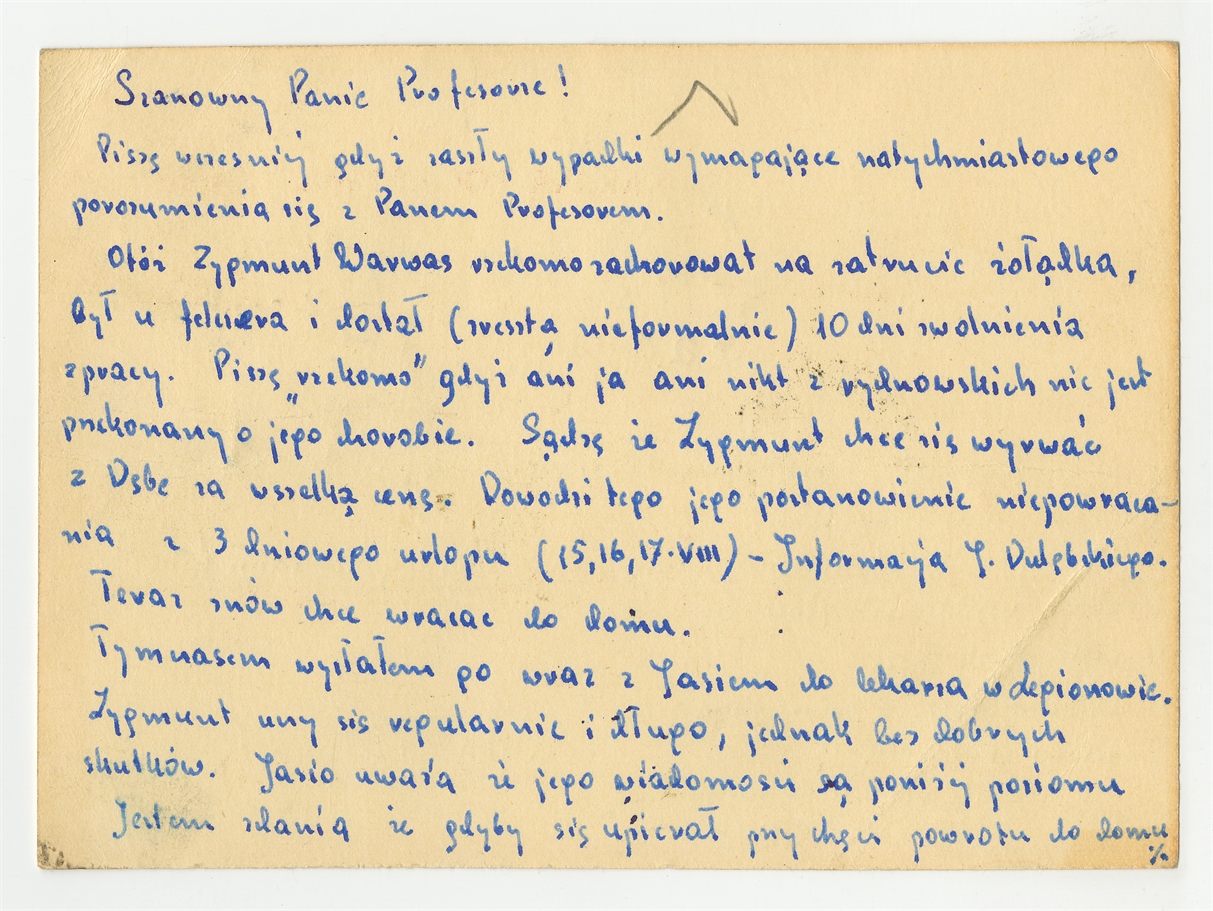 Szanowny Panie Profesorze!
Piszę wcześniej gdyż zaszły wypadki wymagające natychmiastowego
porozumienia się z Panem Profesorem.
Otóż Zygmunt Warwas rzekomo zachorował na zatrucie żołądka,
Był u felczera i dostał (zresztą nieformalnie) 10 dni zwolnienia
z pracy. Piszę „rzekomo" gdyż ani ja ani nikt z rydnowskich nie jest
przekonany o jego chorobie. Sądzę że Zygmunt chce się wyrwać
z Dębe za wszelką cenę. Dowodzi tego jego postanowienie niepowraca-
nia z 3 dniowego urlopu (15,16,17.VIII) – Informacja J. Dulębskiego.
Teraz znów chce wracac do domu.
Tymczasem wysłałem go wraz z Jasiem do lekarza w Legionowie.
Zygmunt uczy się regularnie i długo, jednak bez dobrych
skutków. Jasio uważa że jego wiadomości są poniżej poziomu
Jestem zdania że gdyby się upierał przy chęci powrotu do domu
./.